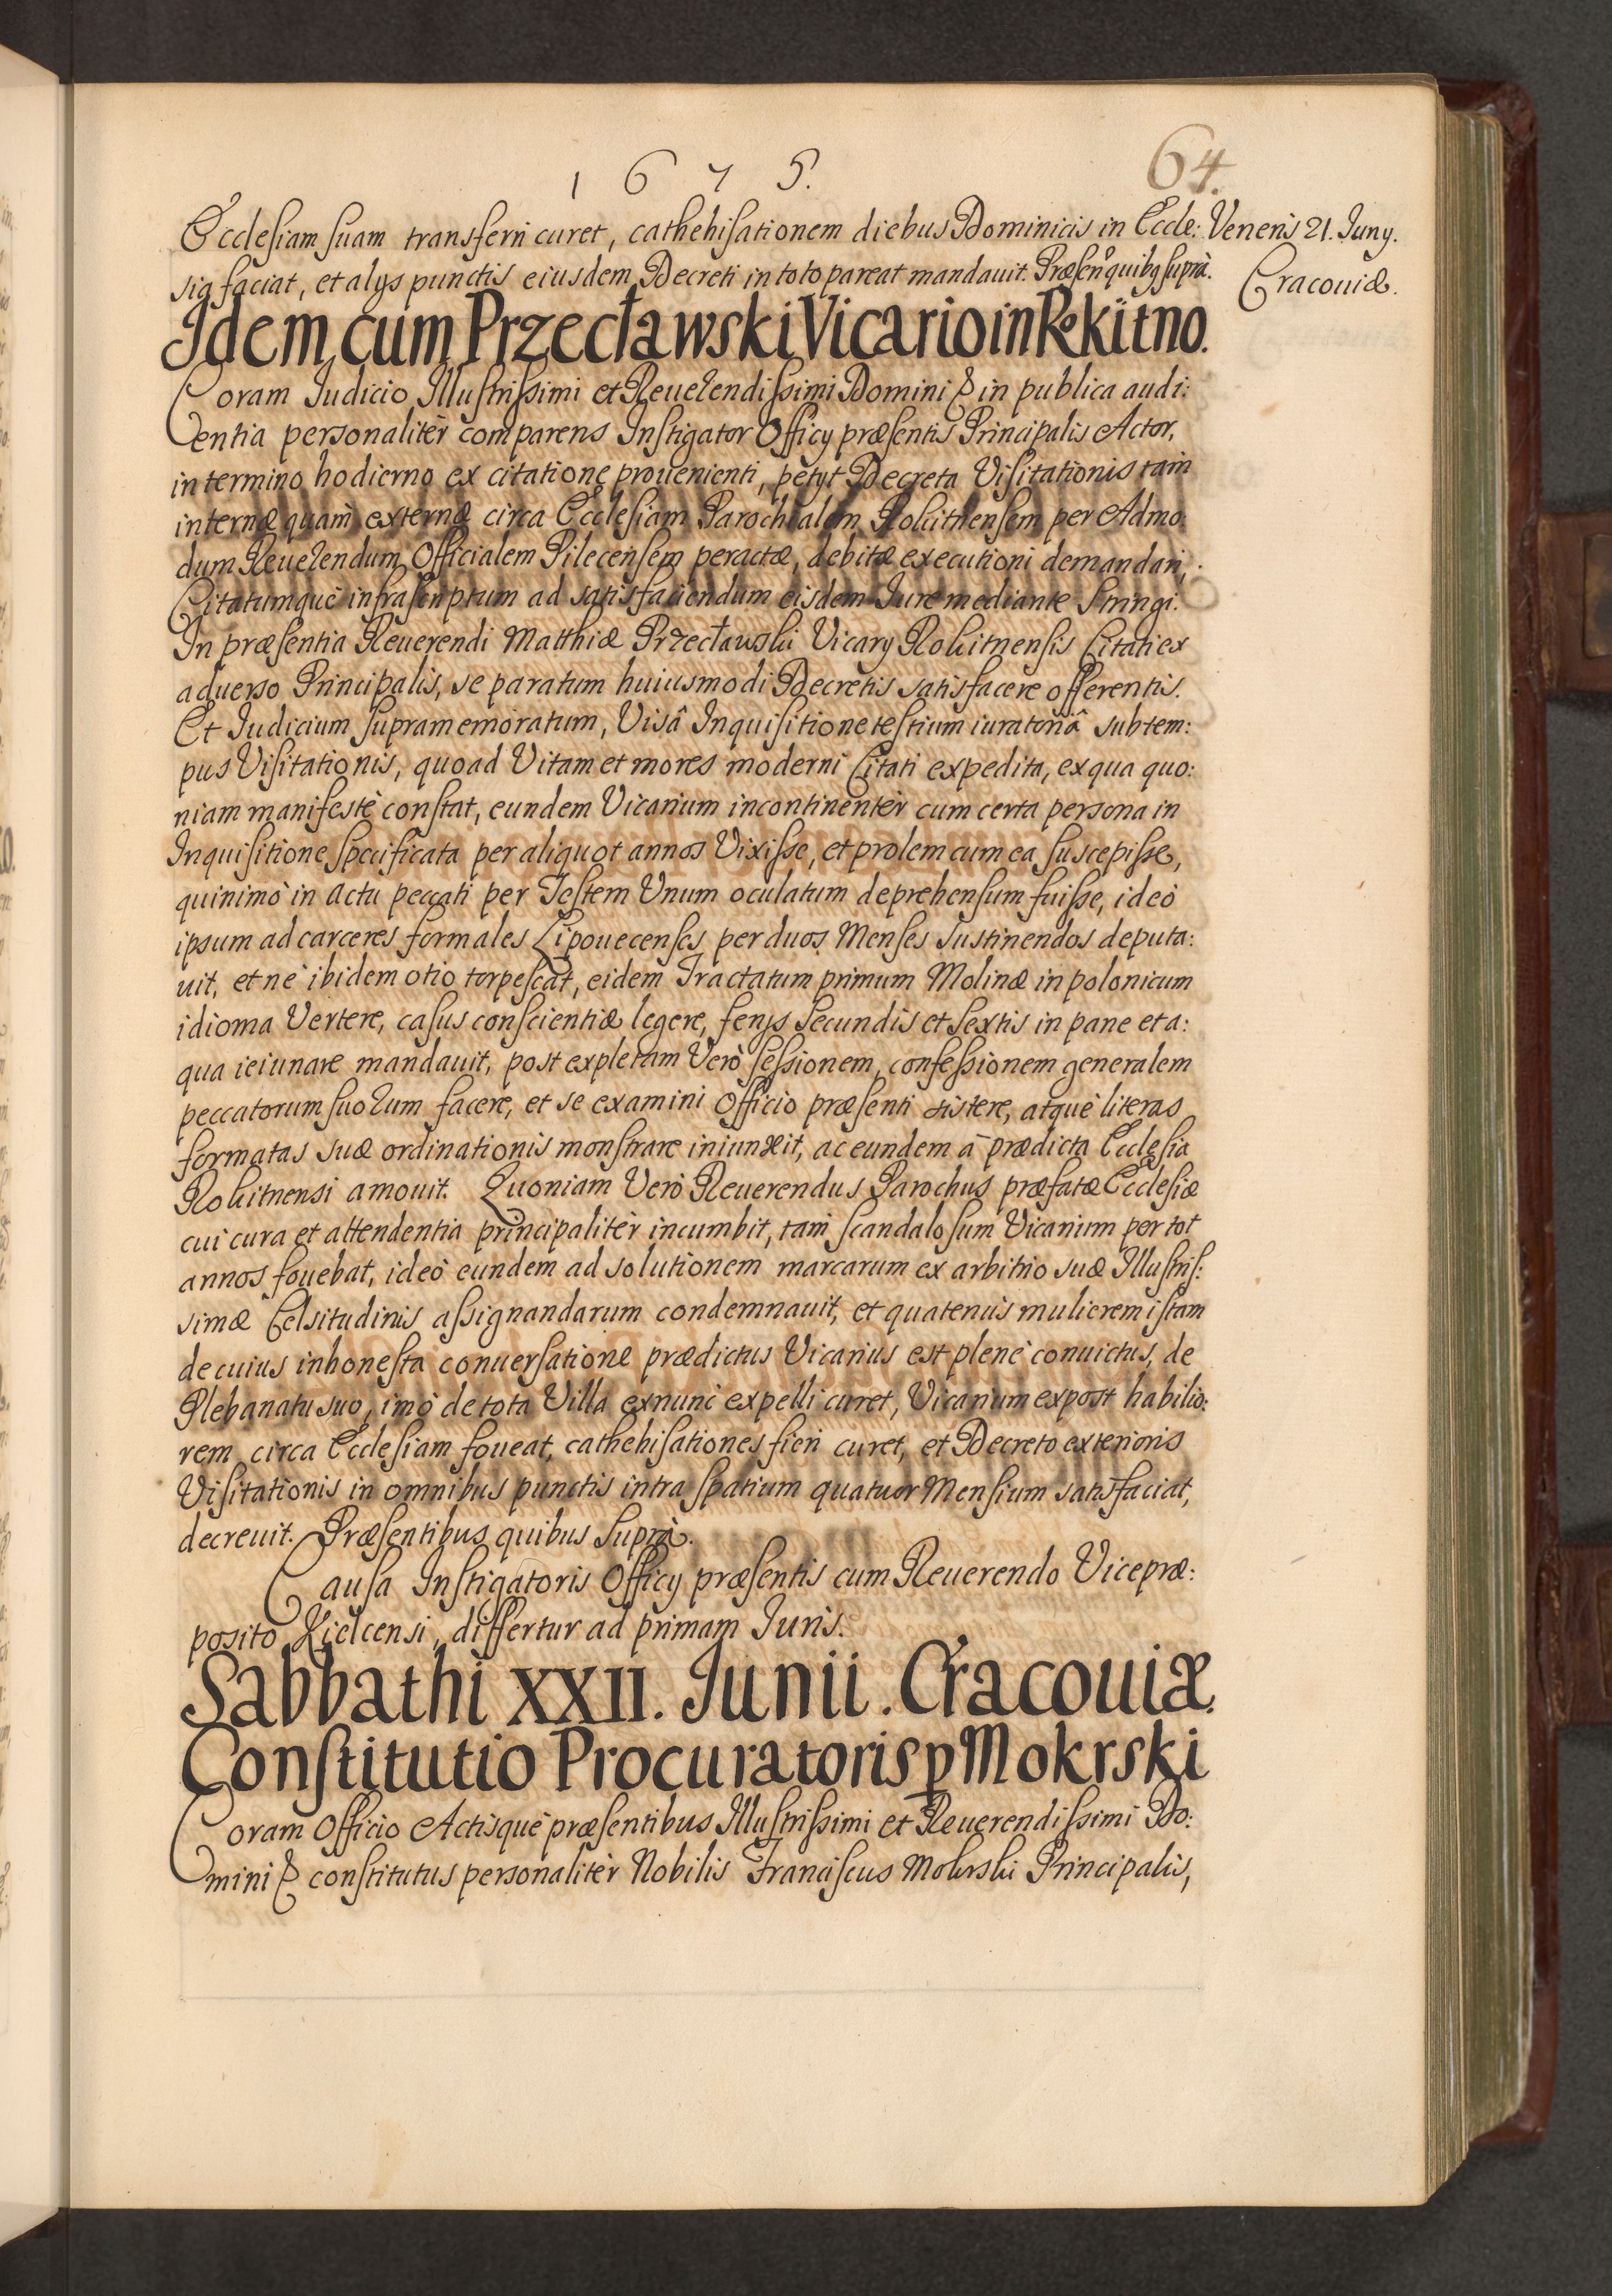 1 6 7 5.
64.
Ecclesiam suam transferri curet, cathehisationem diebus Dominicis in Eccle:
Veneris 21. Juny.
sia faciat, et alys punctis eiusdem Decreti in toto pareat mandauit. Præsen quibg suprà.
Cracouiæ.
Idem cum Przecławski Vicario in Rokitno.
Coram Iudicio Illustrissimi et Reuerendissimi Domini & in publica audi:
entia personalitèr comparens Instigator Officy præsentis Principalis Actor,
in termino hodierno ex citatione prouenienti, petyt Decreta Visitationis tam
internæ quàm externæ circa Ecclesiam Parochialem Rokitnensem per Admo:
dum Reuerendum Officialem Pilecensem peractæ, debitæ executioni demandari,
Citatumquè infrascriptum ad satisfaciendum eisdem Iure mediante stringi.
In præsentia Reuerendi Matthiæ Przecławski Vicary Rokitnensis Citati ex
aduerso Principalis, se paratum huiusmodi Decretis satisfacere offerentis.
Et Iudicium supramemoratum, Visâ Inquisitione testium iuratoriâ sub tem:
pus Visitationis, quoad Vitam et mores moderni Citati expedita, ex qua quo:
niam manifestè constat, eundem Vicarium incontinentèr cum certa persona in
Inquisitione specificata per aliquot annos Vixisse, et prolem cum ea suscepisse,
quinimò in actu peccati per Testem Vnum oculatum deprehensum fuisse, ideò
ipsum ad carceres formales Lipouecenses per duos Menses sustinendos deputa:
uit, et nè ibidem otio torpescat, eidem Tractatum primum Molinæ in polonicum
idioma Vertere, casus conscientiæ legere, ferys secundis et sextis in pane et a:
qua ieiunare mandauit, post expletam Verò sessionem, confessionem generalem
peccatorum suorum facere, et se examini Officio præsenti sistere, atquè literas
formatas suæ ordinationis monstrare iniunxit, ac eundem â prædicta Ecclesia
Rokitnensi amouit. Quoniam Verò Reuerendus Parochus præfatæ Ecclesiæ
cui cura et attendentia principalitèr incumbit, tam scandalosum Vicarium per tot
annos fouebat, ideò eundem ad solutionem marcarum ex arbitrio suæ Illustris:
simæ Celsitudinis assignandarum condemnauit, et quatenùs mulierem istam
de cuius inhonesta conuersatione prædictus Vicarius est plenè conuictus, de
Plebanatu suo, imò de tota Villa exnunc expelli curet, Vicarium expost habilio:
rem circa Ecclesiam foueat, cathehisationes fieri curet, et Decreto exterioris
Visitationis in omnibus punctis intra spatium quatuor Mensium satisfaciat,
decreuit. Præsentibus quibus suprà.
Causa Instigatoris Officy præsentis cum Reuerendo Vicepræ:
posito Kielcensi, differtur ad primam Iuris.
Sabbathi XXII. Junii. Cracouiæ.
Constitutio Procuratoris p Mokrski
Coram Officio Actisquè præsentibus Illustrissimi et Reuerendissimi Do:
mini & constitutus personalitèr Nobilis Franciscus Mokrski Principalis,